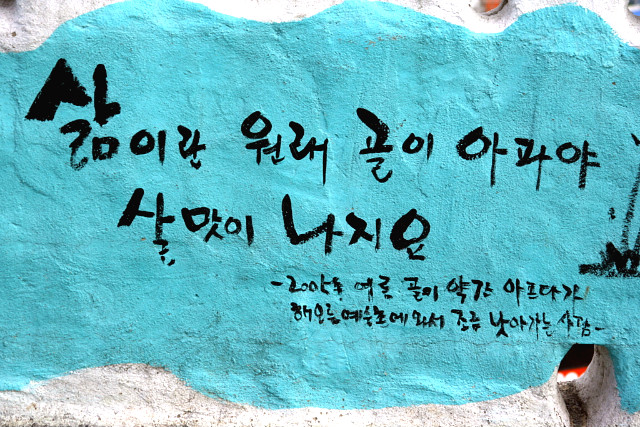 삶이란 원래 골이 아파야
살맛이 나지요
여름 골이 약간 아프다가
해오름예술촌에 와서 조금 낫아가는 사람-